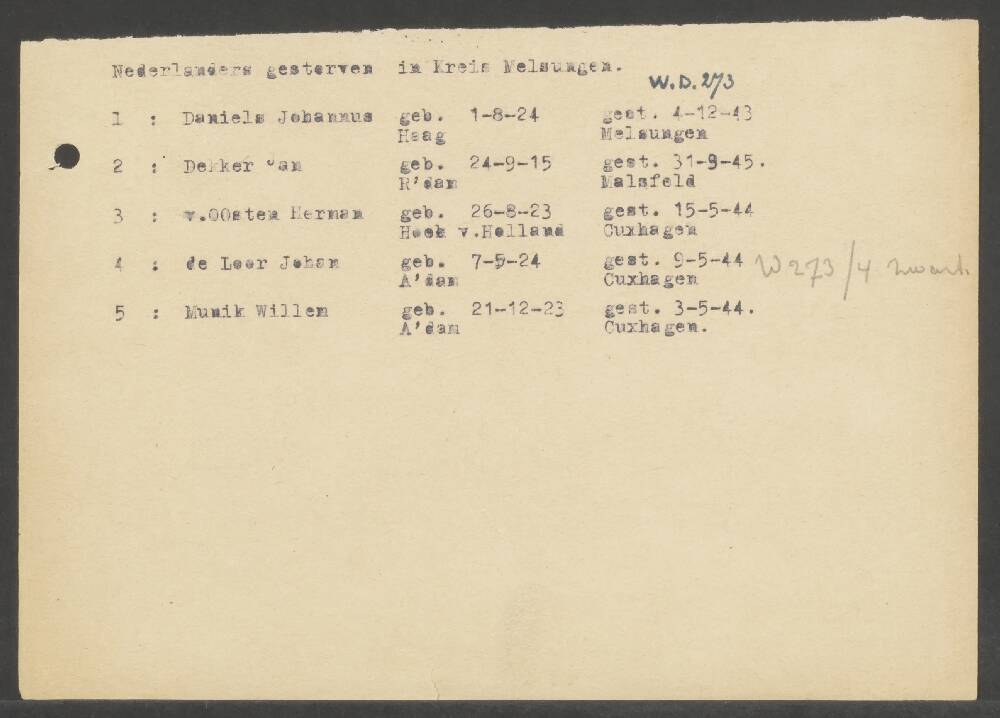 Nederlanders gestorven in Kreis Melsungen.
W.D. 273
1 : Daniels Johannus geb. 1-8-24 gest. 4-12-43
Haag Melsungen
2 : Dekker Jan geb. 24-9-15 gest. 31-9-45.
R'dam Malsfeld
3 : v.OOsten Herman geb. 26-8-23 gest. 15-5-44
Hoek v.Holland Cuxhagen
4 : de Loor Johan geb. 7-5-24 gest. 9-5-44 W273/4 zwart.
A'dam Cuxhagen
5 : Munik Willem geb. 21-12-23 gest. 3-5-44.
A'dam Cuxhagen.